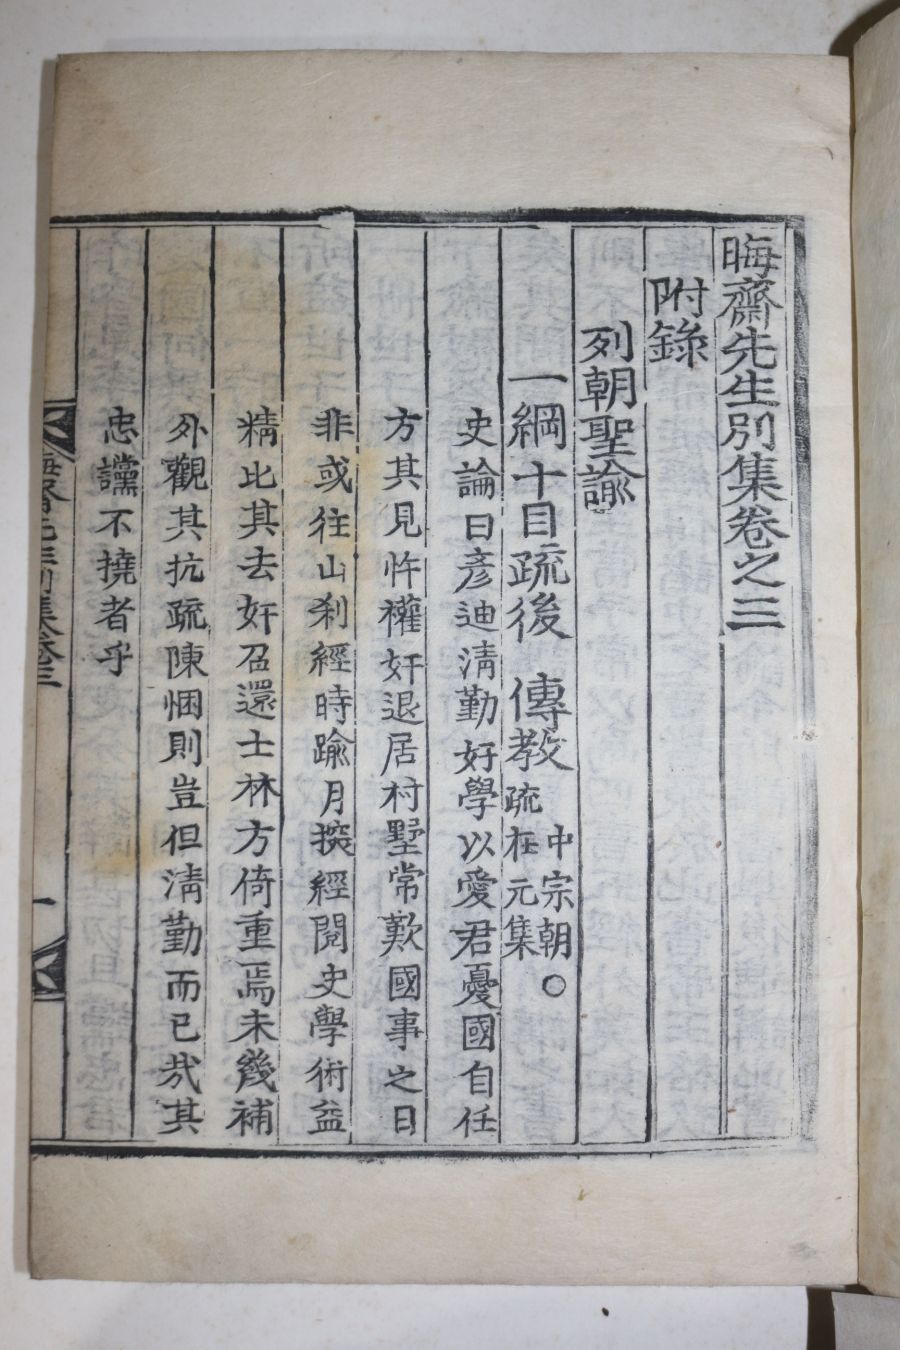 晦齋先生別集卷之三
附錄
列朝聖諭
一綱十目疏後　傳教中宗朝○疏在元集
史論曰彦迪淸勤好學以愛君憂國自任
方其見忤權奸退居村墅常歎國事之日
非或往山刹經時踰月探經閱史學術益
精比其去奸召還士林方倚重焉未幾補
外觀其抗疏陳悃則豈但淸勤而已㢤其
忠讜不撓者乎
晦齋先生別集卷三
一